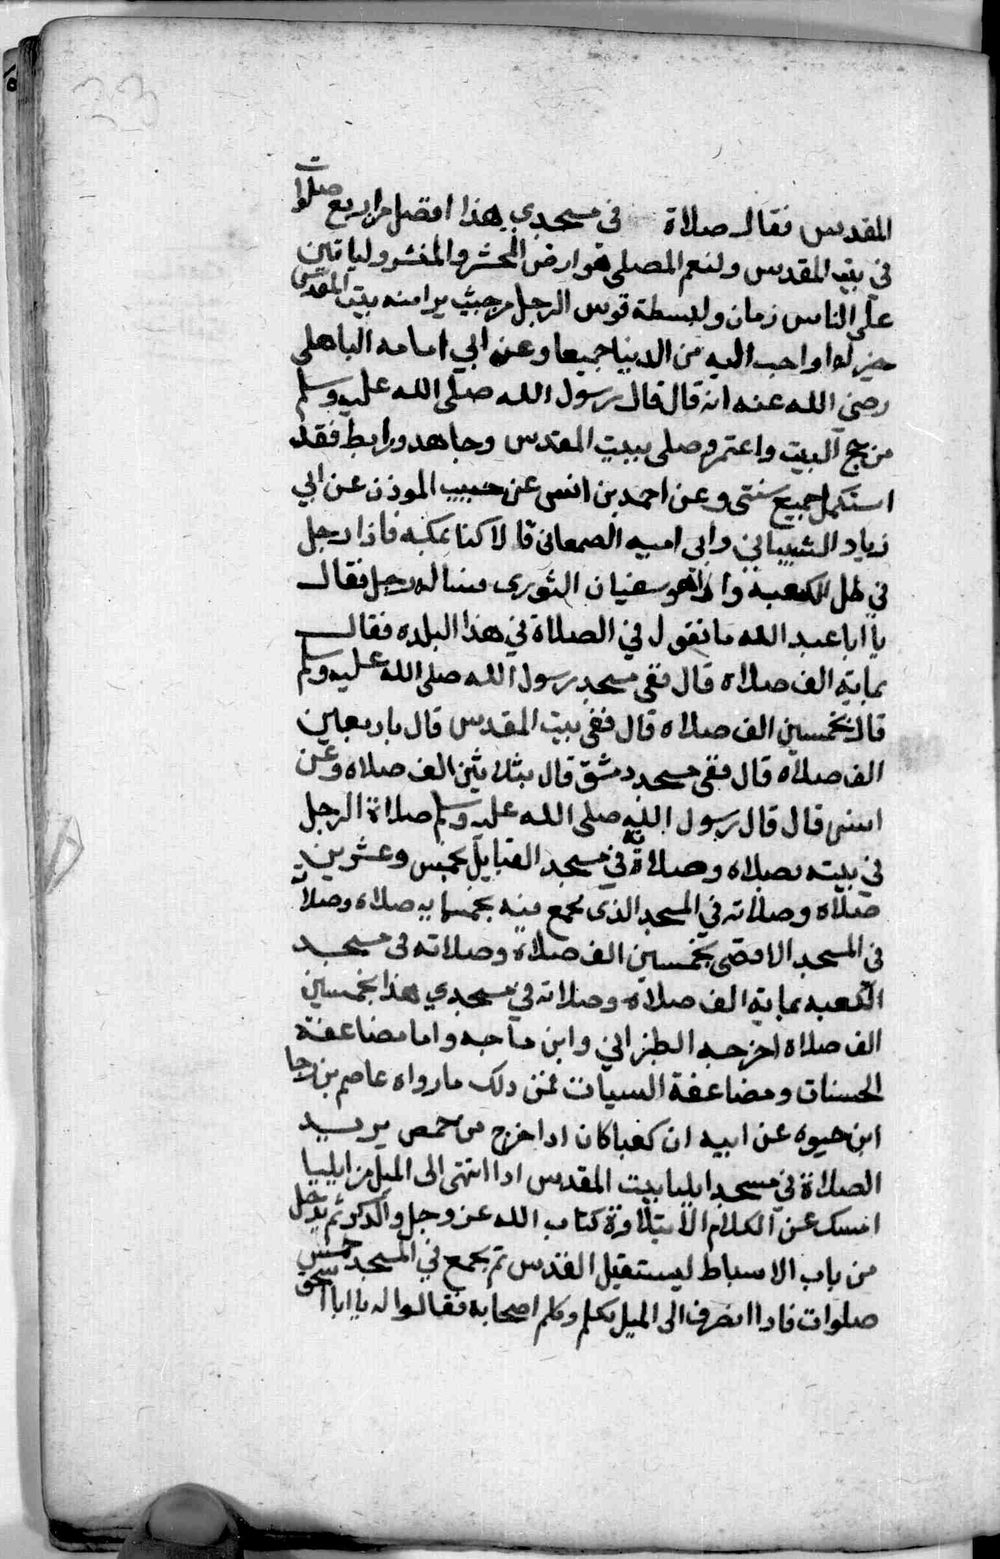 المقدس فقال صلاة في مسجدي هذا افضل من اربع صلوات
في بيت المقدس ولنعم المصلى هو ارض المحشر والمنشر ولياتين
على الناس زمان ولبسطة قوس الرجل من حيث يرا منه بيت المقدس
خير له او احب اليه من الدنيا جميعا وعن ابي امامه الباهلي
رضي الله عنه انه قال قال رسول الله صلى الله عليه وسلم
من حج البيت واعتمر وصلى ببيت المقدس وجاهد ورابط فقد
استكمل جميع سنتي وعن احمد بن انس عن حبيب الموذن عن ابي
زياد الشيباني وابي اميه الصمعاني قالا كنا بمكه فاذا رجل
في ظل الكعبة واذا هو سفيان الثورى فساله رجل فقال
يا ابا عبد الله ما تقول في الصلاة في هذا البلده فقال
بماية الف صلاه قال ففي مسجد رسول الله صلى الله عليه وسلم
قال بخمسين الف صلاه قال ففي بيت المقدس قال باربعين
الف صلاه قال ففي مسجد دمشق قال بثلاثين الف صلاه وعن
انس قال قال رسول الله صلى الله عليه وسلم صلاة الرجل
في بيته بصلاه وصلاته في مسجد القبايل بخمس وعشرين
صلاه وصلاته في المسجد الذى يجمع فيه بخمسمايه صلاه وصلاته
في المسجد الاقصى بخمسين الف صلاة وصلاته في مسجد
الكعبه بماية الف صلاة وصلاته في مسجدي هذا بخمسين
الف صلاة اخرجه الطبراني وابن ماجه واما مضاعفة
الحسنات ومضاعفة السيات فمن ذلك ما رواه عاصم بن رجا
ابن حيوه عن ابيه ان كعبا كان اذا خرج من حمص يريد
الصلاة في مسجد ايليا بيت المقدس اذا انتهى الى الميل من ايليا
امسك عن الكلام الا بتلاوة كتاب الله عز وجل والذكر ثم يدخل
من باب الاسباط ليستقبل القدس ثم يجمع في المسجد خمس
صلوات فاذا انصرف الى الميل تكلم وكلم اصحابه فقالوا له يا ابا اسحق